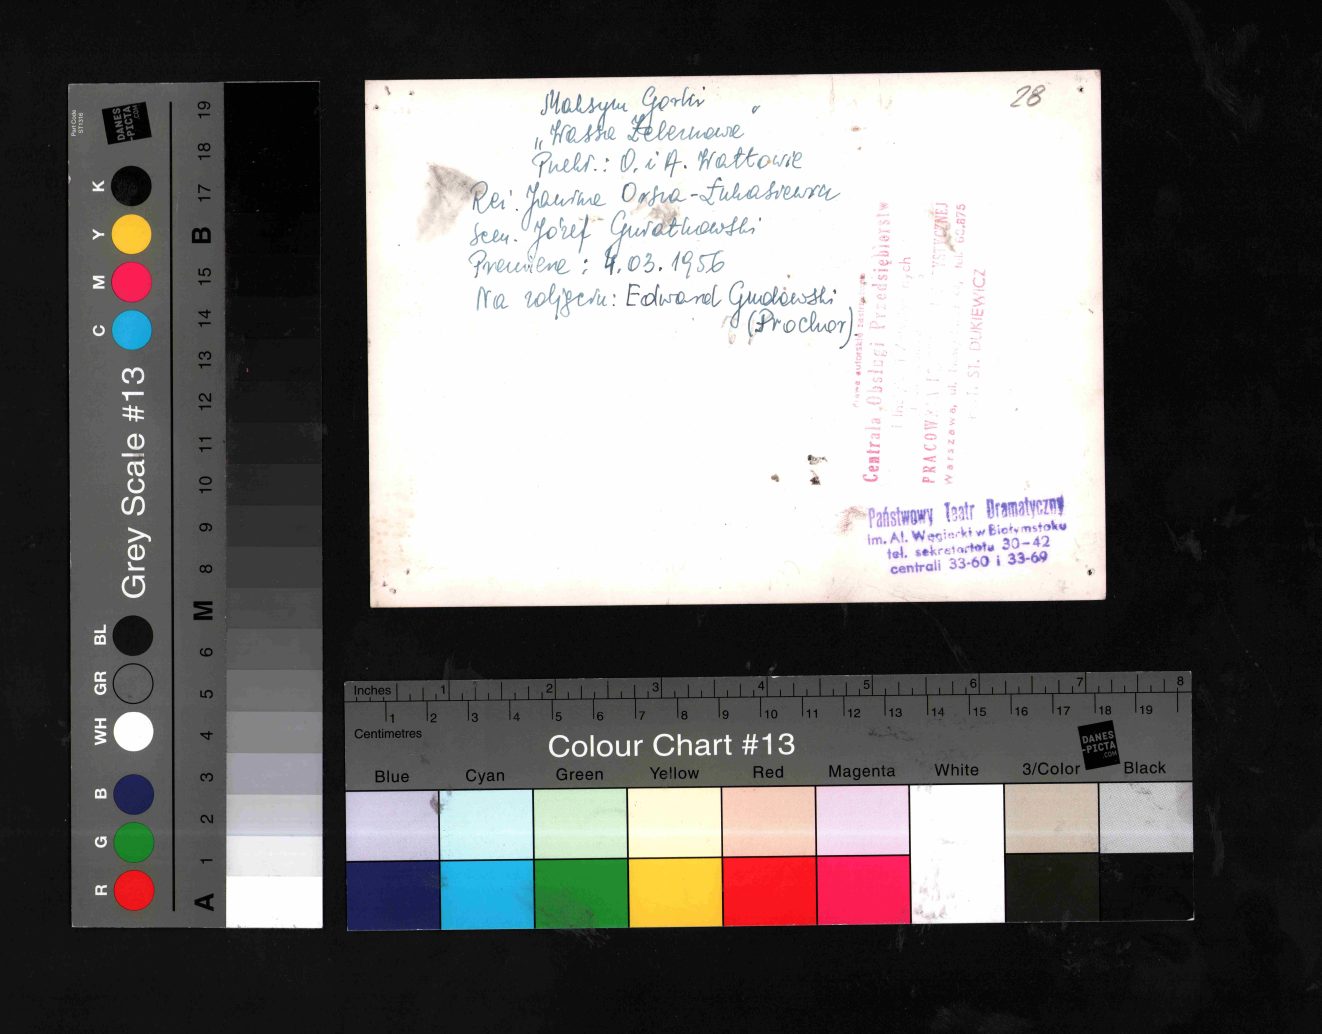 Maksym Gorki
„Wassa Żeleznowa”
Przekł.: O. i A. Wattowie
Reż. Janina Orsza-Łukasiewicz
Scen. Józef Gwiatkowski
Premiera: 4.03.1956
Na zdjęciu: Edward Gudowski
(Prochor)
28
Prawa autorskie
Centrala Obsługi Przedsiębiorstw
PRACOWNIA
Warszawa, ul. tel. 62.875
St. DUKIEWICZ
Państwowy Teatr Dramatyczny
im. Al. Węgierki w Białymstoku
tel. sekretariatu 30-42
centrali 33-60 i 33-69
Part Code
ST1316
DANES
-PICTA
.COM
Grey Scale #13
R G B WH GR BL C M Y K
A 1 2 3 4 5 6 M 8 9 10 11 12 13 14 15 B 17 18 19
Inches 1 2 3 4 5 6 7 8
1 2 3 4 5 6 7 8 9 10 11 12 13 14 15 16 17 18 19
Centimetres
Colour Chart #13
DANES
-PICTA
.COM
Blue Cyan Green Yellow Red Magenta White 3/Color Black